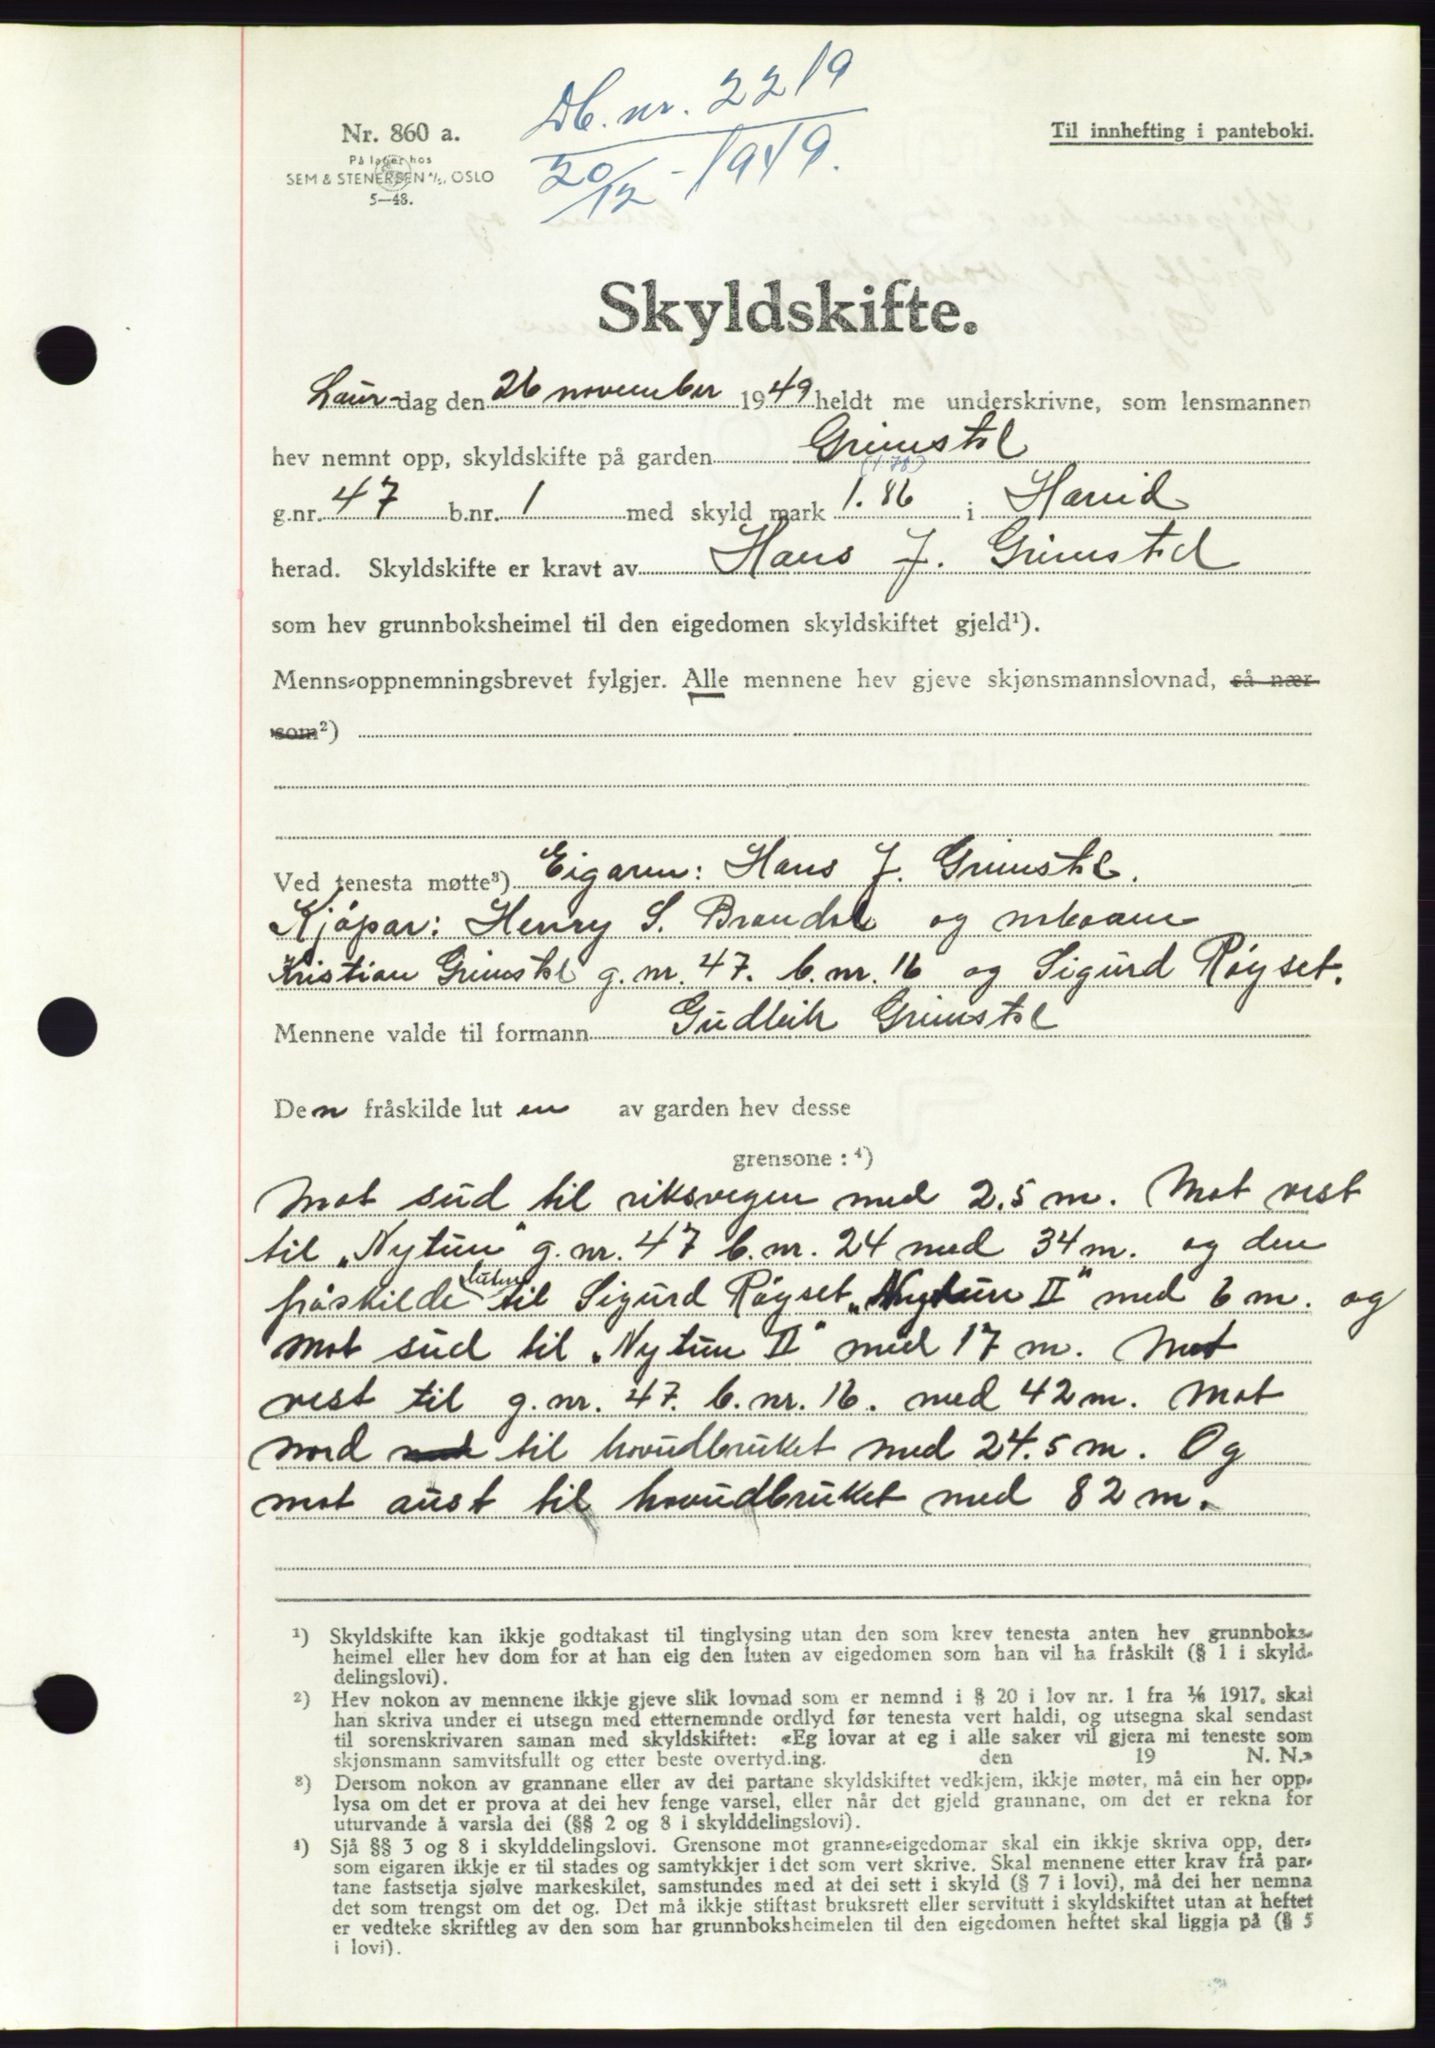 Db. nr. 2219
20/12 - 1949.
Nr. 860 a.
På lager hos
SEM & STENERSEN A/S, OSLO
5—48.
Til innhefting i panteboki.
Skyldskifte.
Laur-dag den 26 november 1949 heldt me underskrivne, som lensmannen
hev nemnt opp, skyldskifte på garden Grimstad
(1.78)
g.nr. 47 b.nr. 1 med skyld mark 1.86 i Hareid
herad. Skyldskifte er kravt av Hans J. Grimstad
som hev grunnboksheimel til den eigedomen skyldskiftet gjeld¹).
Menns-oppnemningsbrevet fylgjer. Alle mennene hev gjeve skjønsmannslovnad, så nær
som²)
Ved tenesta møtte³) Eigaren: Hans J. Grimstad.
Kjøpar: Henry S. Brandal og naboane
Kristian Grimstad g.nr. 47. b.nr. 16 og Sigurd Røyset.
Mennene valde til formann Gudleik Grimstad
Den fråskilde luten av garden hev desse
grensone: ⁴)
Mot sud til riksvegen med 2.5 m. Mot vest
til „Nytun" g.nr. 47 b.nr. 24 med 34 m. og den
fråskilde luten til Sigurd Røyset „Nytun II" med 6 m. og
mot sud til „Nytun II" med 17 m. Mot
vest til g.nr. 47. b.nr. 16. med 42 m. Mot
nord til hovudbruket med 24.5 m. Og
mot aust til hovudbruket med 82 m.
¹) Skyldskifte kan ikkje godtakast til tinglysing utan den som krev tenesta anten hev grunnboks-
heimel eller hev dom for at han eig den luten av eigedomen som han vil ha fråskilt (§ 1 i skyld-
delingslovi).
²) Hev nokon av mennene ikkje gjeve slik lovnad som er nemnd i § 20 i lov nr. 1 fra 1/6 1917, skal
han skriva under ei utsegn med etternemnde ordlyd før tenesta vert haldi, og utsegna skal sendast
til sorenskrivaren saman med skyldskiftet: «Eg lovar at eg i alle saker vil gjera mi teneste som
skjønsmann samvitsfullt og etter beste overtyding. den 19 N. N.»
³) Dersom nokon av grannane eller av dei partane skyldskiftet vedkjem, ikkje møter, må ein her opp-
lysa om det er prova at dei hev fenge varsel, eller når det gjeld grannane, om det er rekna for
uturvande å varsla dei (§§ 2 og 8 i skylddelingslovi).
⁴) Sjå §§ 3 og 8 i skylddelingslovi. Grensone mot granne-eigedomar skal ein ikkje skriva opp, der-
som eigaren ikkje er til stades og samtykkjer i det som vert skrive. Skal mennene etter krav frå par-
tane fastsetja sjølve markeskilet, samstundes med at dei sett i skyld (§ 7 i lovi), må dei her nemna
det som trengst om det og. Det må ikkje stiftast bruksrett eller servitutt i skyldskiftet utan at heftet
er vedteke skriftleg av den som har grunnboksheimelen til den eigedomen heftet skal liggja på (§ 5
i lovi).